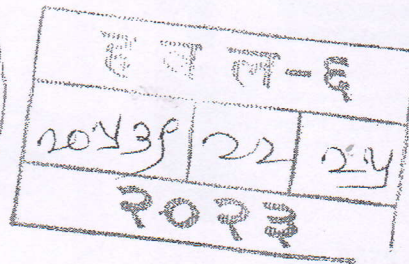 ह व ल-६
२०५३९ २२ २५
२०२३